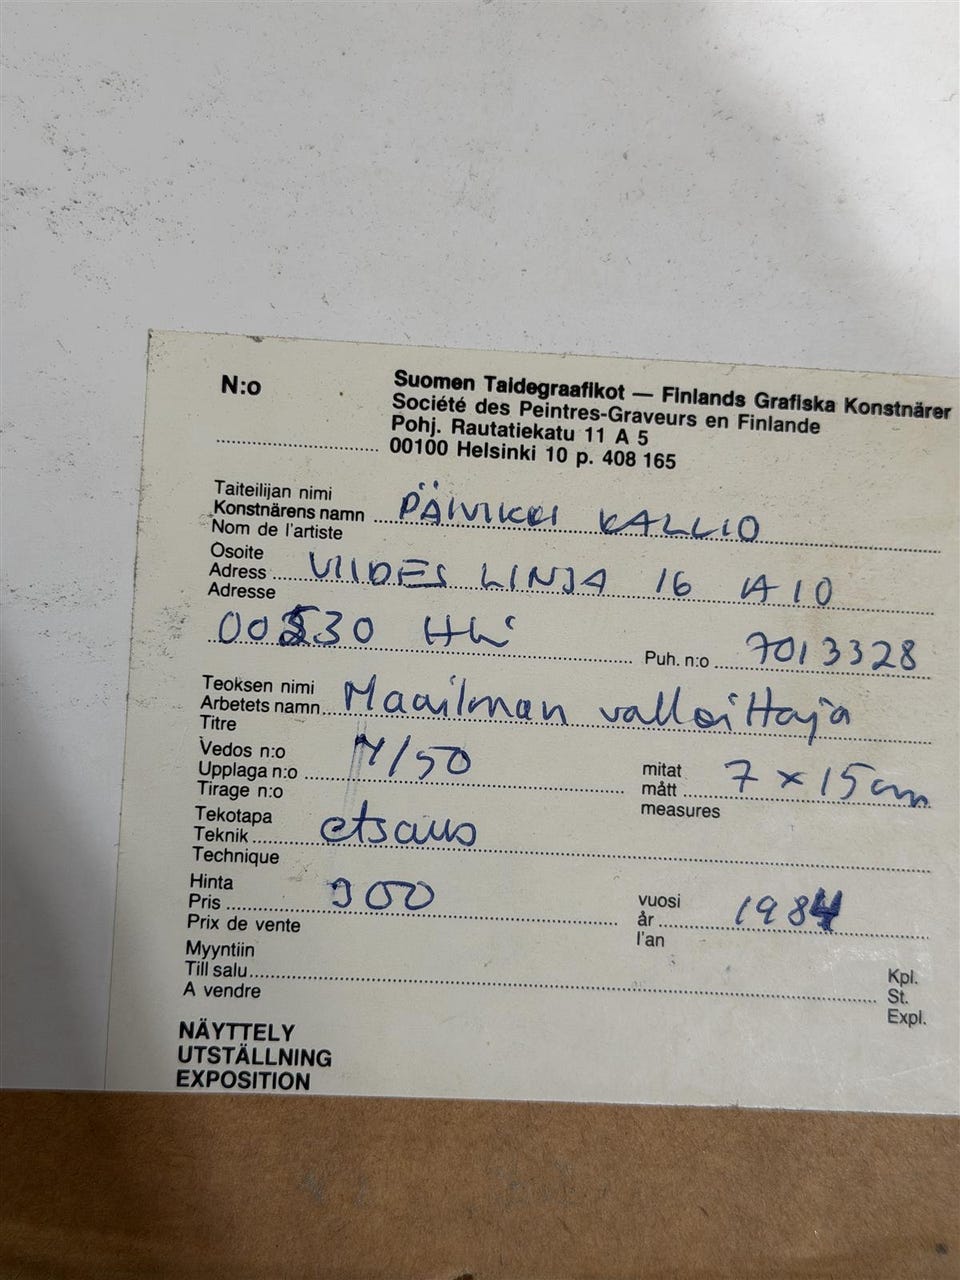 N:o
Suomen Taidegraafikot — Finlands Grafiska Konstnärer
Société des Peintres-Graveurs en Finlande
Pohj. Rautatiekatu 11 A 5
00100 Helsinki 10 p. 408 165
Taiteilijan nimi
Konstnärens namn PÄIVIKKI KALLIO
Nom de l'artiste
Osoite
Adress VIIDES LINJA 16 A 10
Adresse
00530 Hki Puh. n:o 7013328
Teoksen nimi
Arbetets namn Maailman valloittaja
Titre
Vedos n:o
Upplaga n:o /50
Tirage n:o
mitat
mått 7 x 15 cm
measures
Tekotapa
Teknik etsaus
Technique
Hinta
Pris 900
Prix de vente
vuosi
år 1984
l'an
Myyntiin
Till salu
A vendre
Kpl.
St.
Expl.
NÄYTTELY
UTSTÄLLNING
EXPOSITION